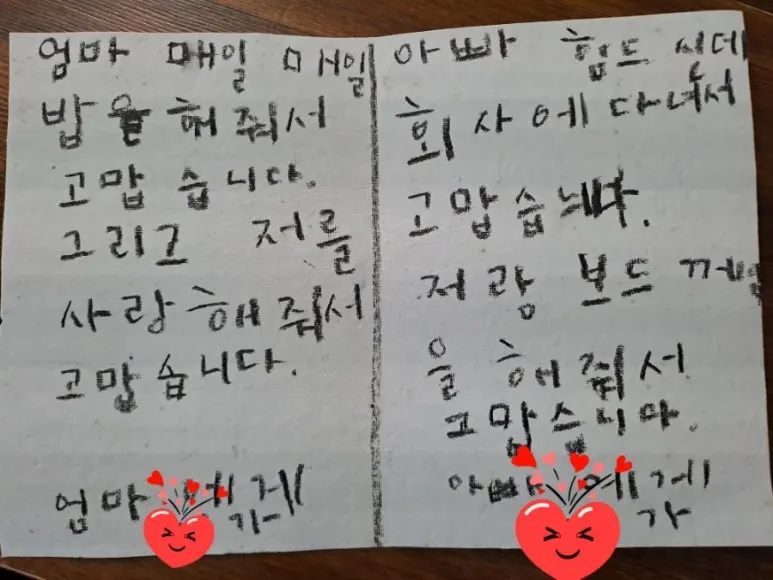 엄마 매일 매일
밥을 해줘서
고맙습니다.
그리고 저를
사랑해줘서
고맙습니다.
엄마 에게
가
아빠 힘드신데
회사에다녀서
고맙습니다.
저랑 보드께벰
을 해줘서
고맙습니다.
아빠 에게
가